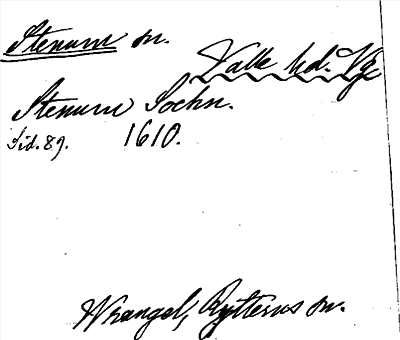 Stenum sn.
Valle hd. Vg
Stenum Sochn.
Sid. 89. 1610.
Wrangel, Rytterus sn.